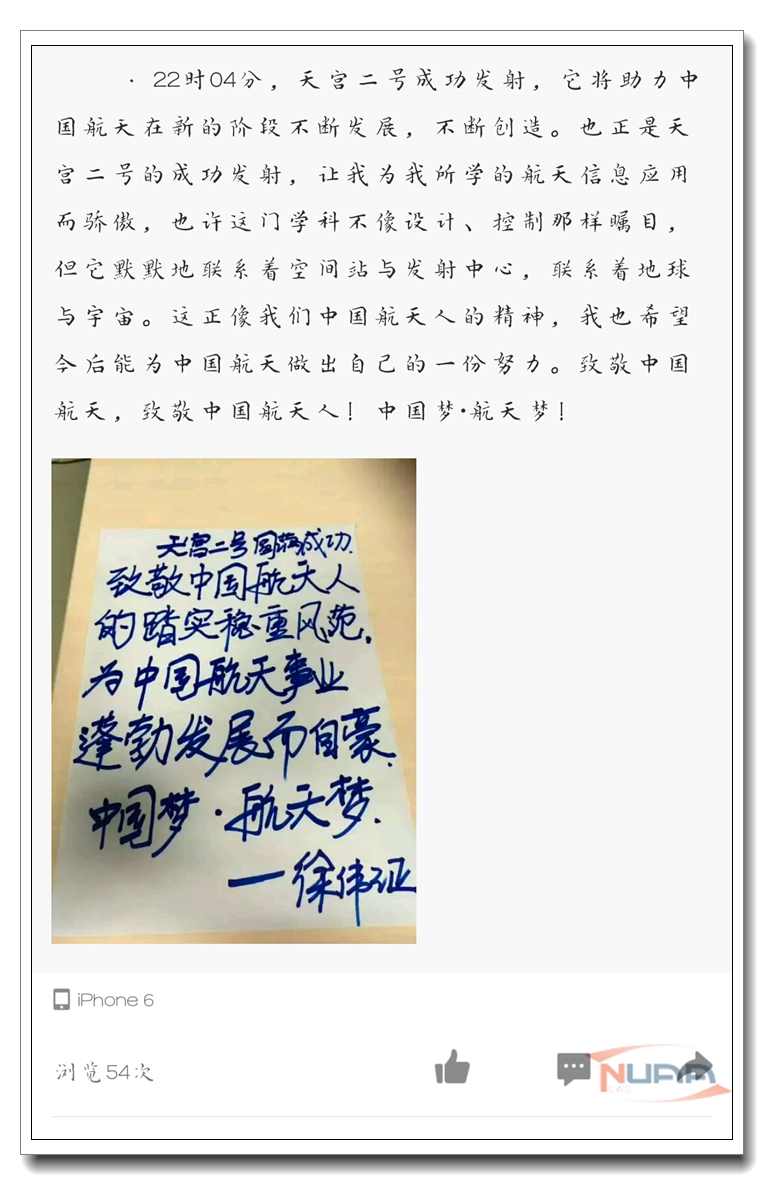 · 22时04分，天宫二号成功发射，它将助力中
国航天在新的阶段不断发展，不断创造。也正是天
宫二号的成功发射，让我为我所学的航天信息应用
而骄傲，也许这门学科不像设计、控制那样瞩目，
但它默默地联系着空间站与发射中心，联系着地球
与宇宙。这正像我们中国航天人的精神，我也希望
今后能为中国航天做出自己的一份努力。致敬中国
航天，致敬中国航天人！中国梦·航天梦！
天宫二号圆满成功.
致敬中国航天人
的踏实稳重风范,
为中国航天事业
蓬勃发展而自豪.
中国梦·航天梦.
—徐伟证
iPhone 6
浏览54次
NUAA